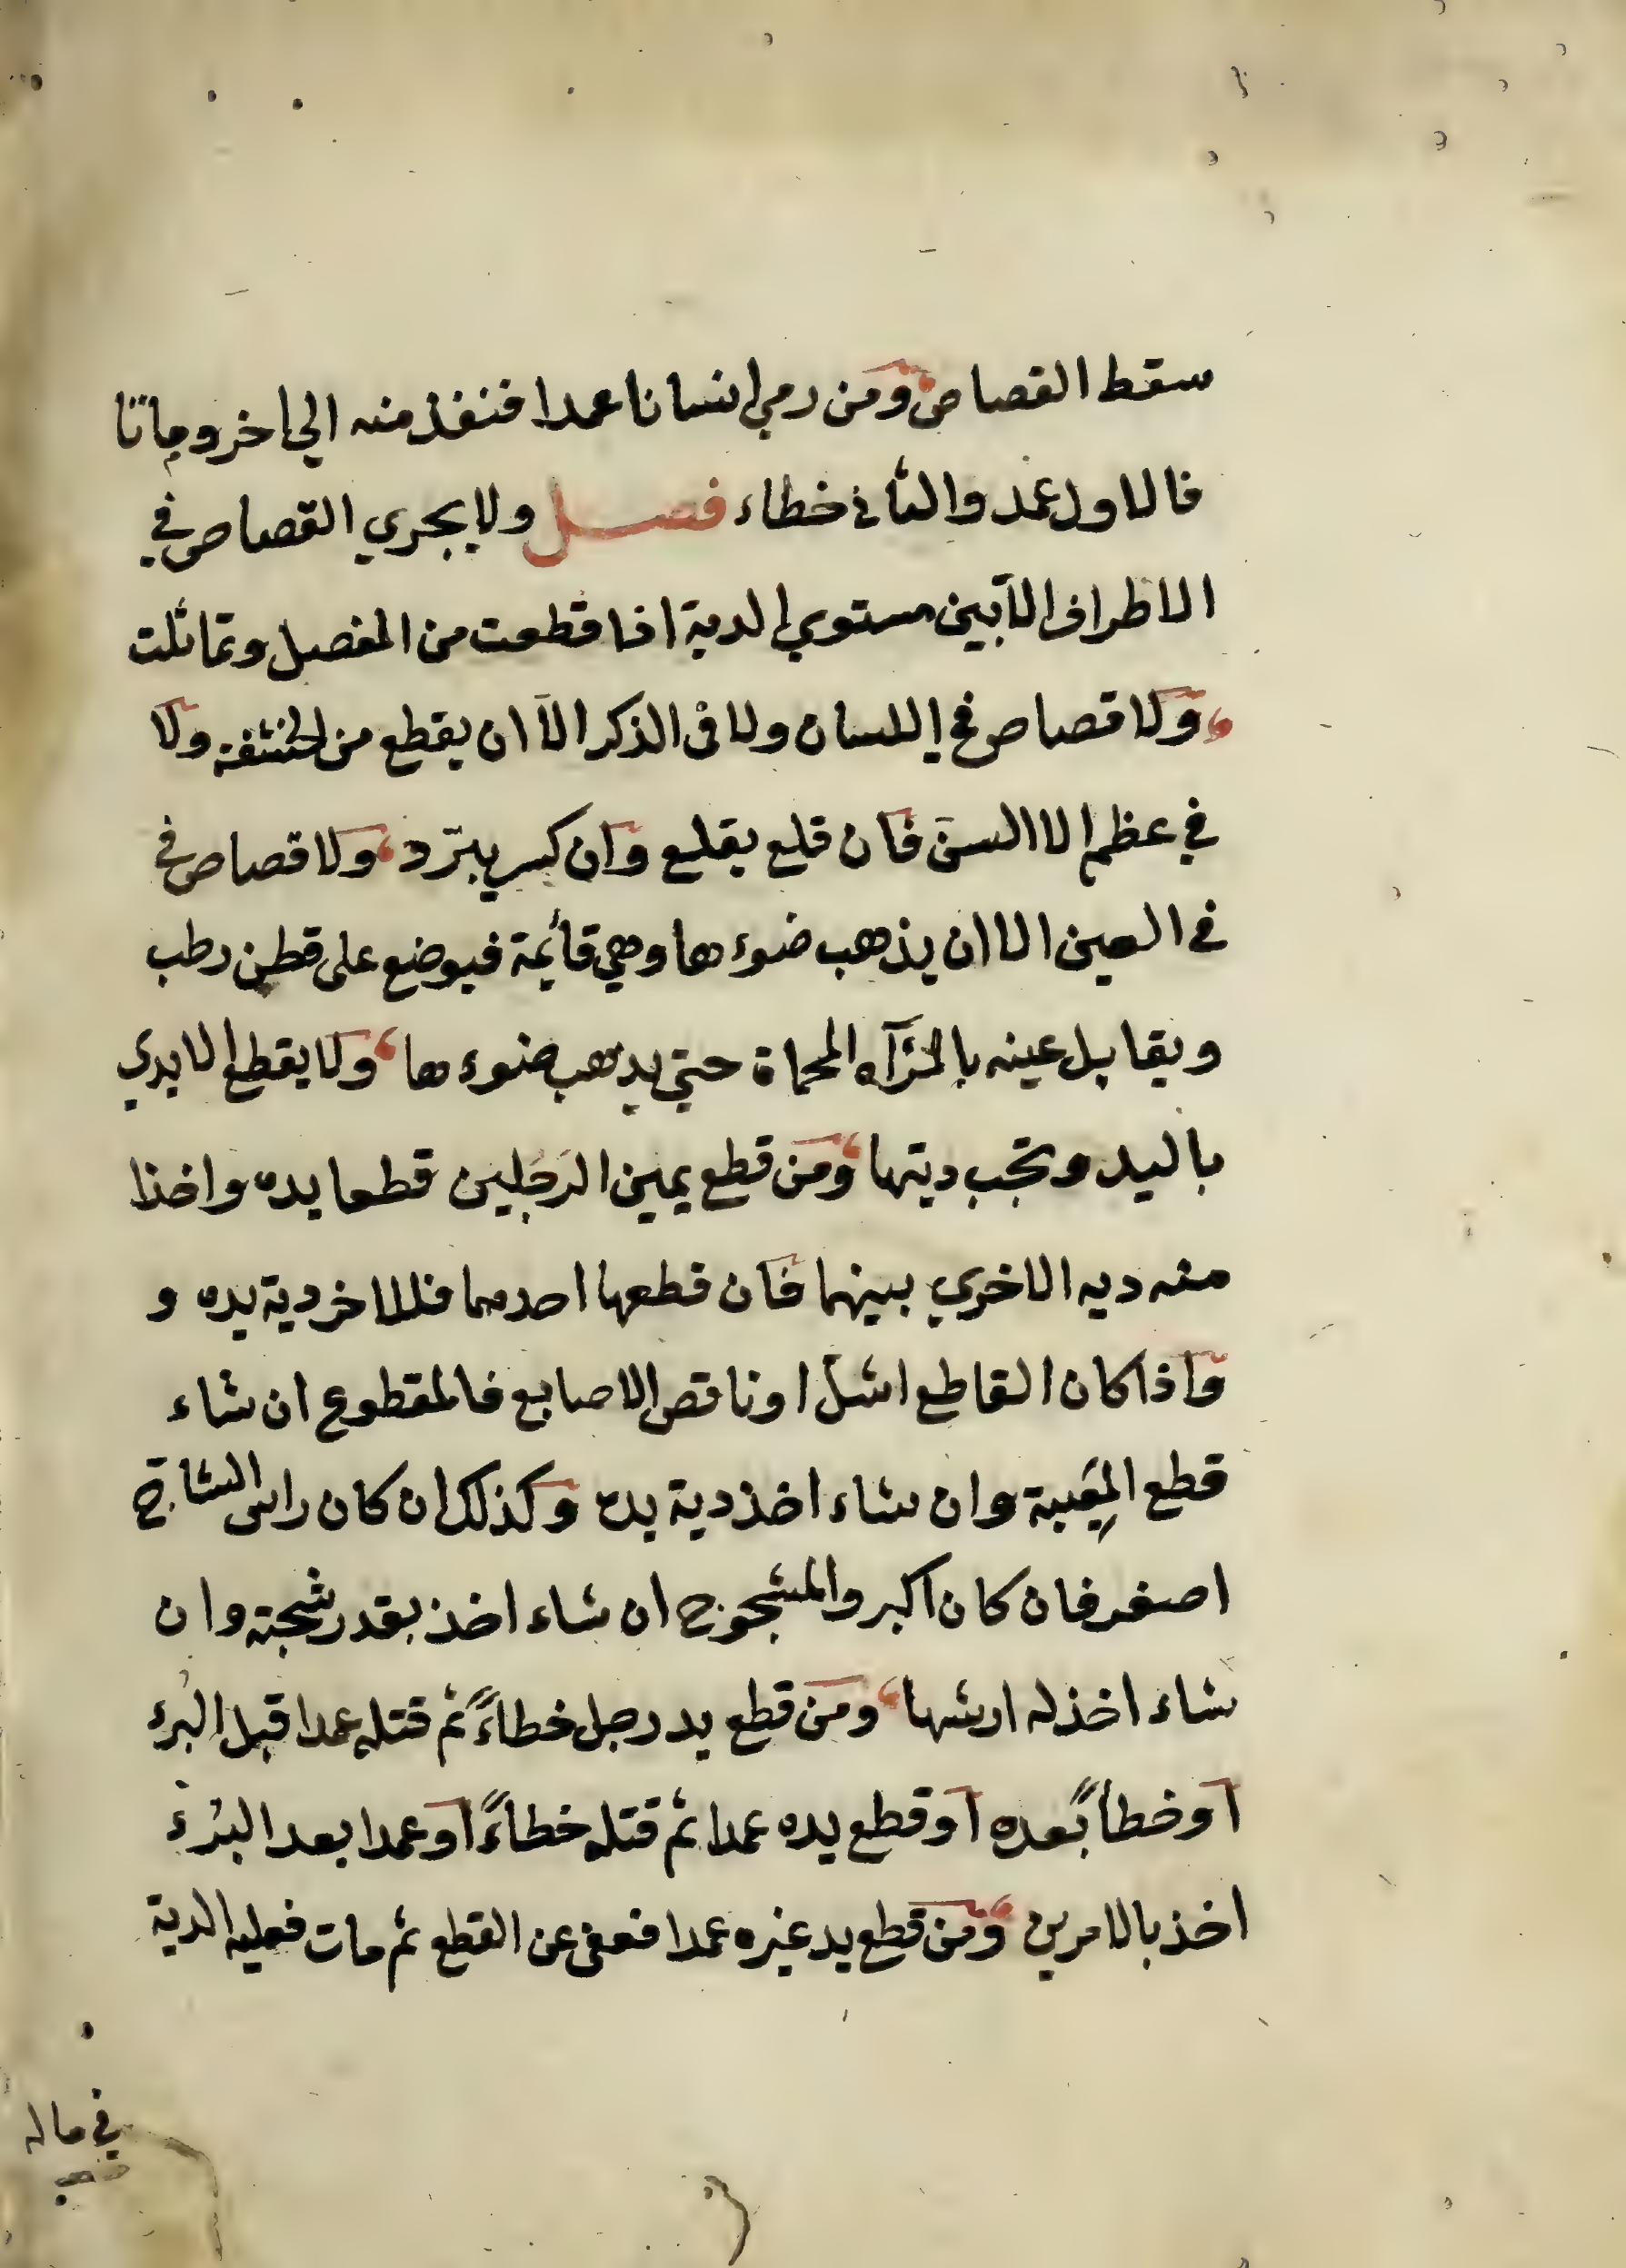 سقط القصاص ومن رمي انسانا عمدا فنفذ منه الي اخر وماتا
فالاول عمد والثاني خطاء فصل ولا يجري القصاص في
الاطراف الا بين مستوي الدية اذا قطعت من المفصل وتماثلت
ولا قصاص في اللسان ولا في الذكر الا ان يقطع من الحشفة ولا
في عظم الا السن فان قلع يقلع وان كسر يبرد ولا قصاص في
في العين الا ان يذهب ضوءها وهي قائمة فيوضع على قطن رطب
ويقابل عينه بالمرآه المحماة حتي يذهب ضوءها ولا يقطع الايدي
باليد وتجب ديتها ومن قطع يمين الرجلين قطعا يده واخذا
منه ديه الاخري بينهما فان قطعها احدهما فللاخر دية يده و
واذا كان القاطع اشل او ناقص الاصابع فالمقطوع ان شاء
قطع المعيبة وان شاء اخذ دية يده وكذلك ان كان راس الشاج
اصغر فان كان اكبر والمشجوج ان شاء اخذ بقدر شجته وان
شاء اخذ له ارشها ومن قطع يد رجل خطاءً ثم قتله عمدا قبل البرء
او خطأً بعده او قطع يده عمدا ثم قتله خطاءً او عمدا بعد البرء
اخذ بالامرين ومن قطع يد غيره عمدا فعفى عن القطع ثم مات فعليه الدية
في ماله